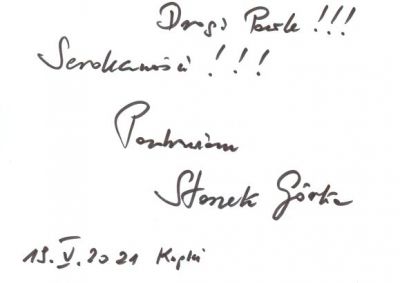 Drogi Panie !!!
Serdeczności !!!
Pozdrawiam
Staszek Górka
19.V.2021 Kępki